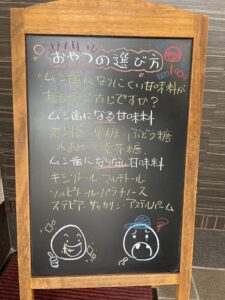 おやつの選び方
ムシ歯になりにくい甘味料が
あるのをご存じですか？
ムシ歯になる甘味料
砂糖・果糖・ぶどう糖
水あめ・麦芽糖
ムシ歯にならない甘味料
キシリトール・マルチトール
ソルビトール・パラチノース
ステビア・サッカリン・アステルパーム